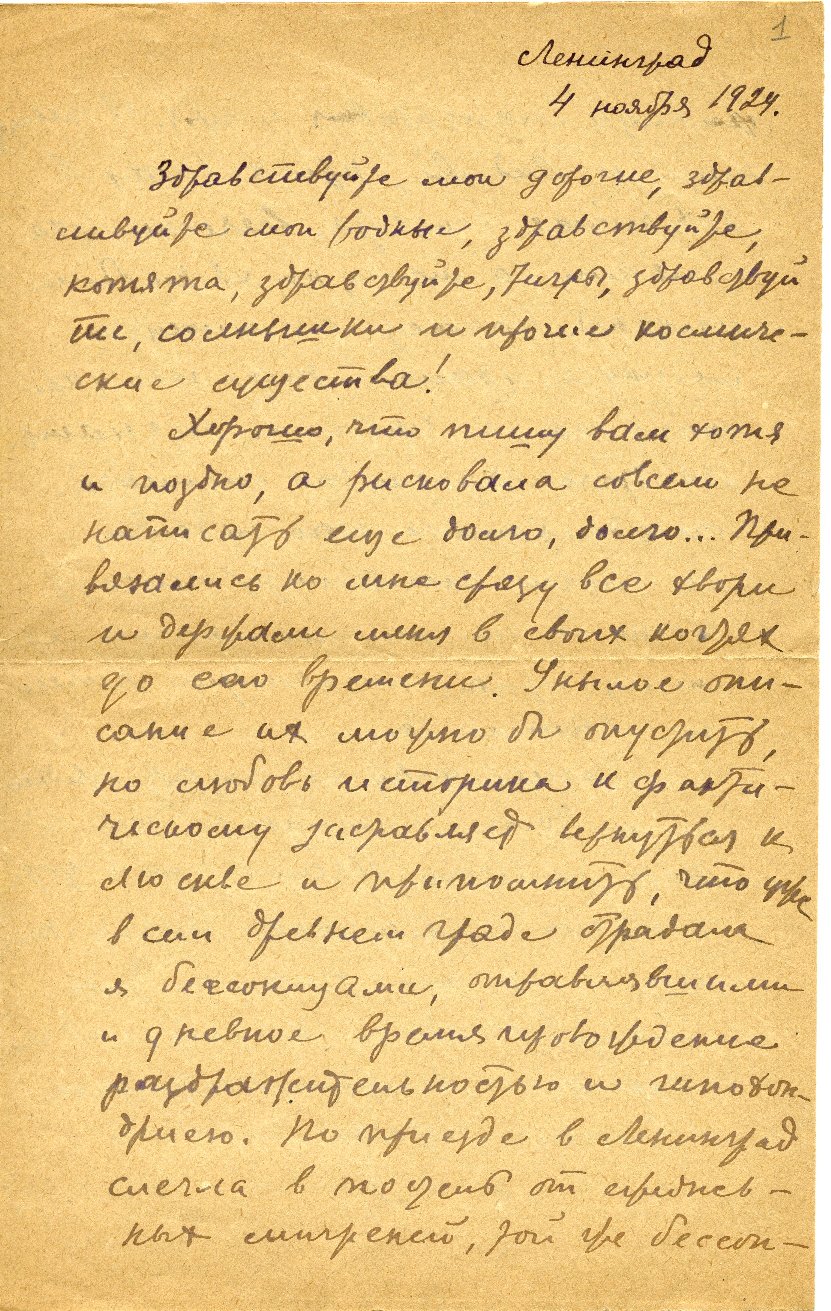 1
Ленинград
4 ноября 1924.
Здравствуйте мои дорогие, здрав-
ствуйте мои родные, здравствуйте,
котята, здравствуйте, тигры, здравствуй
те, солнышки и прочие космиче-
ские существа!
Хорошо, что пишу вам хотя
и поздно, а рисковала совсем не
написать еще долго, долго... При-
вязались ко мне сразу все хвори
и держали меня в своих когтях
до сего времени. Унылое опи-
сание их можно бы опустить,
но любовь историка к факти-
ческому заставляет вернуться к
Москве и припомнить, что уже
в сем древнем граде страдала
я бессонницами, отравлявшими
и дневное времяпровождение
раздражительностью и ипохон-
дриею. По приезде в Ленинград
слегла в постель от ежднев-
ных мигреней, той же бессон-